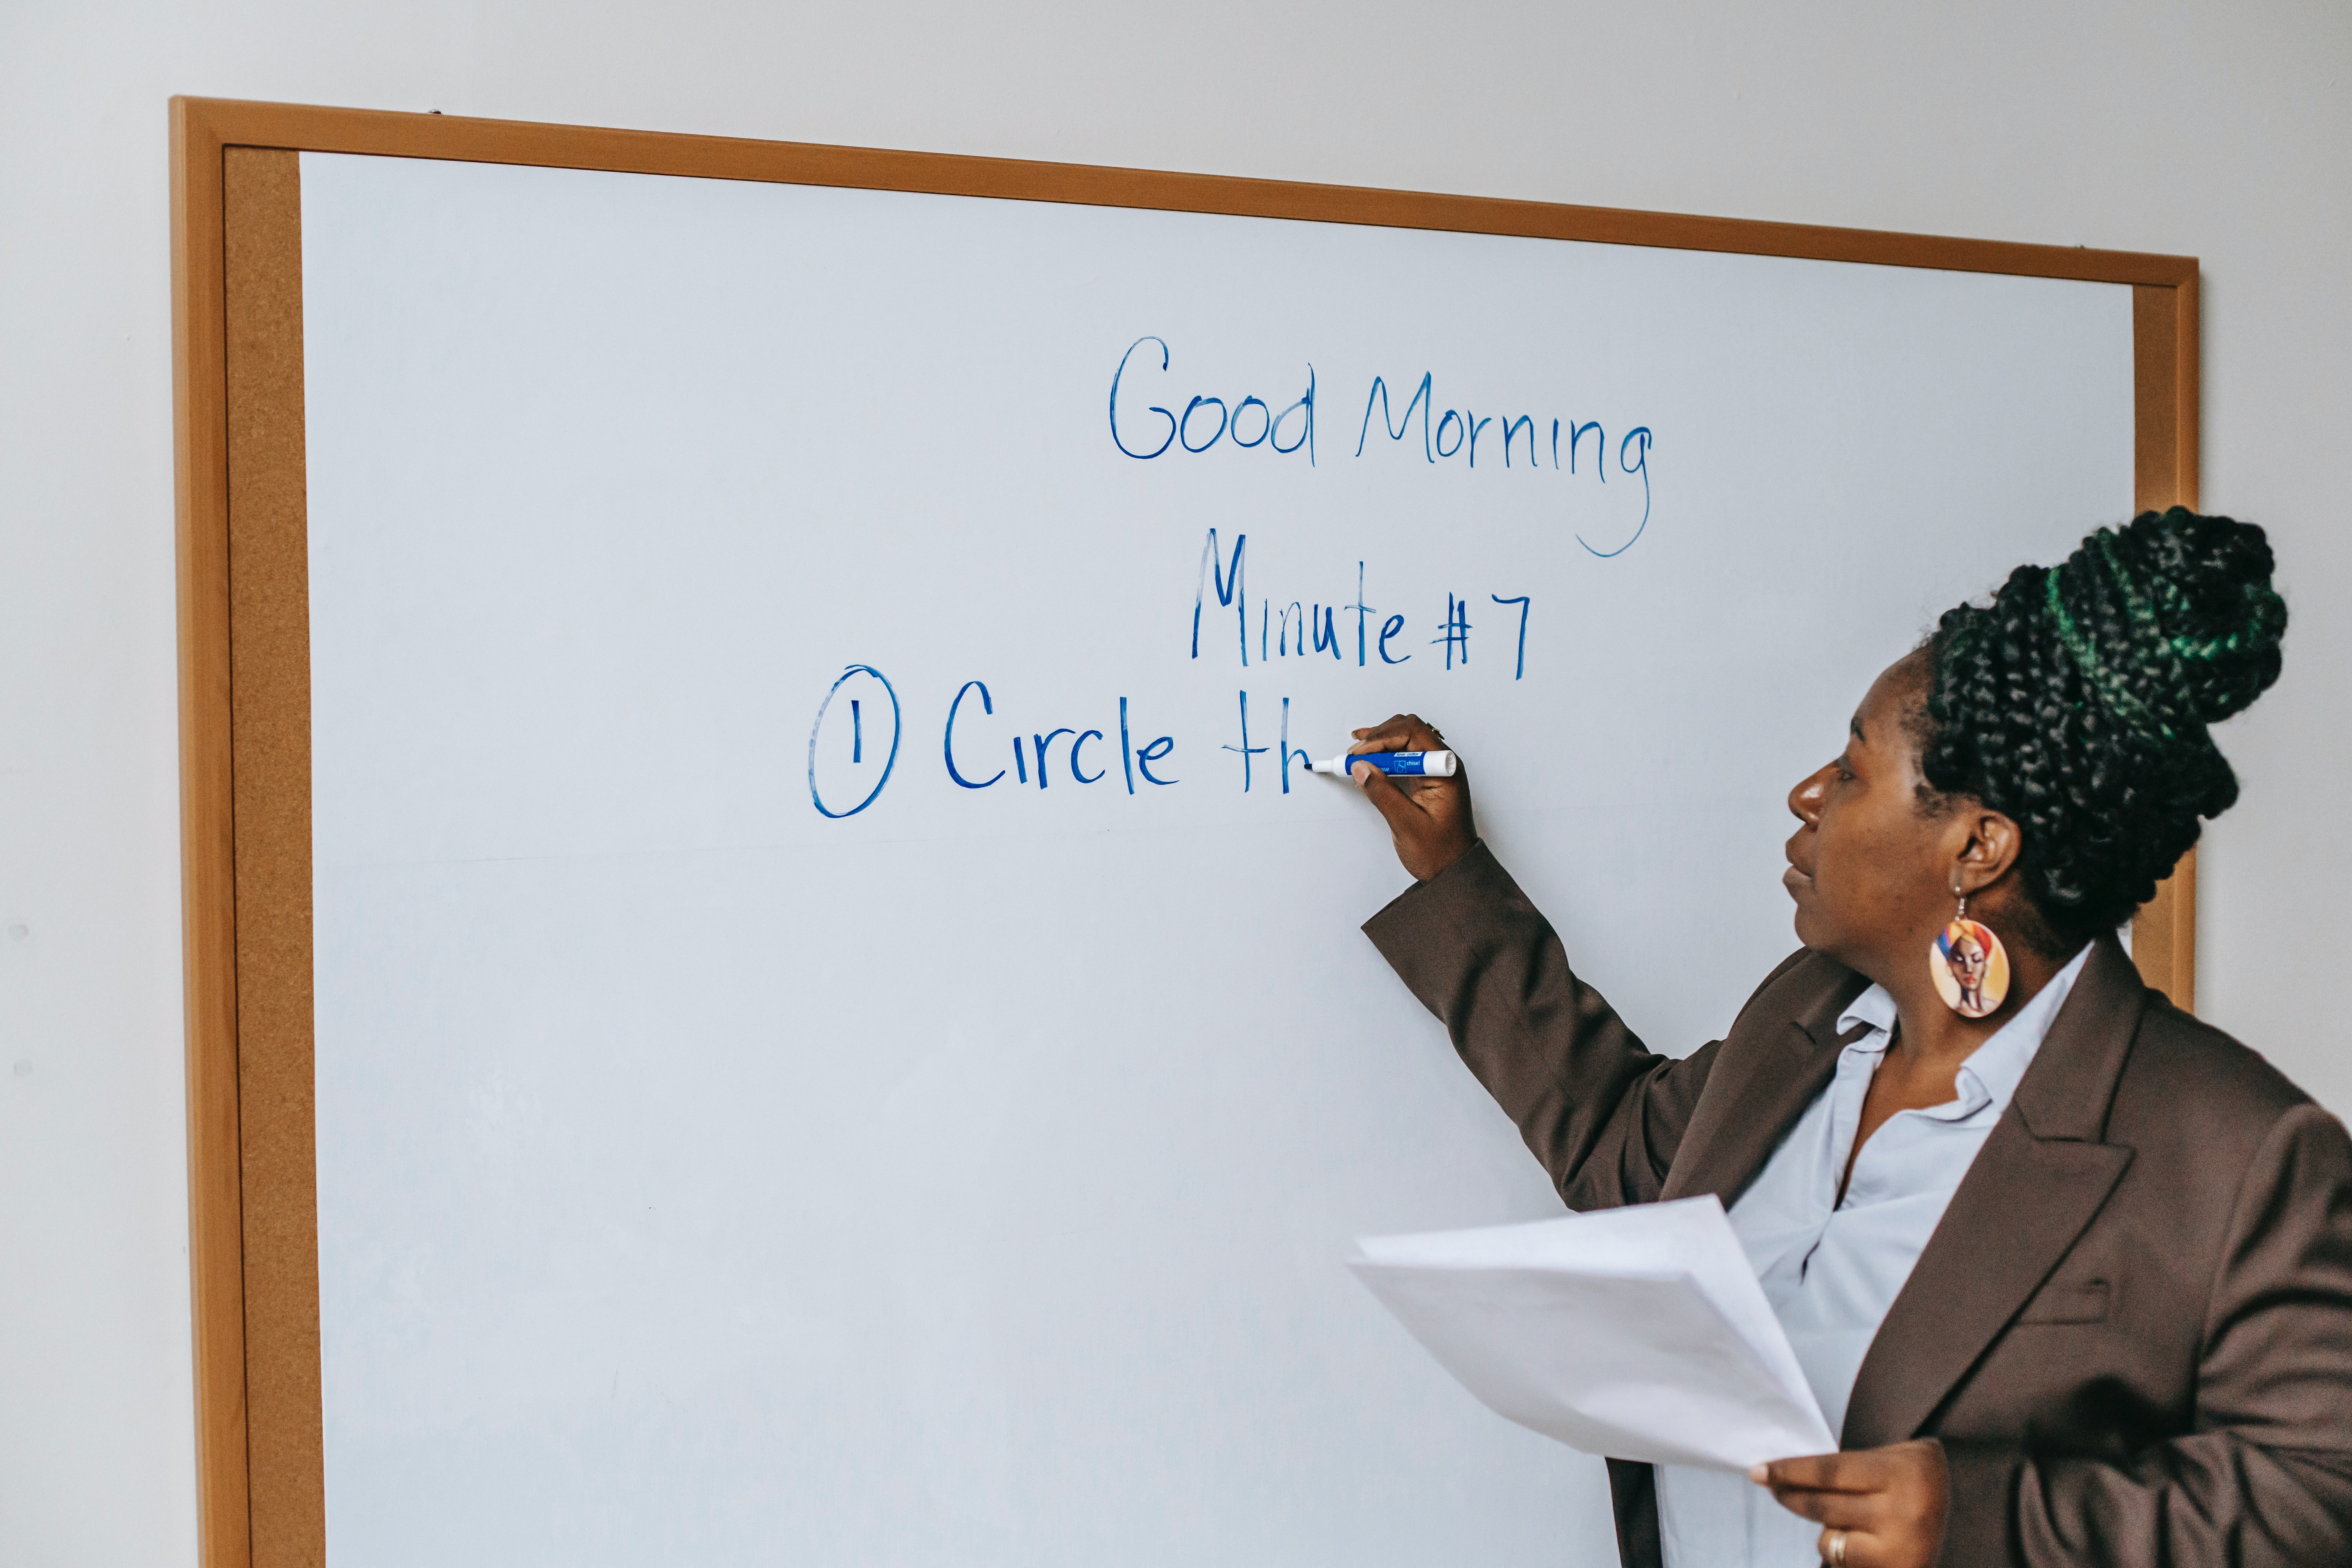 Good Morning
Minute #7
1 Circle th
chisel